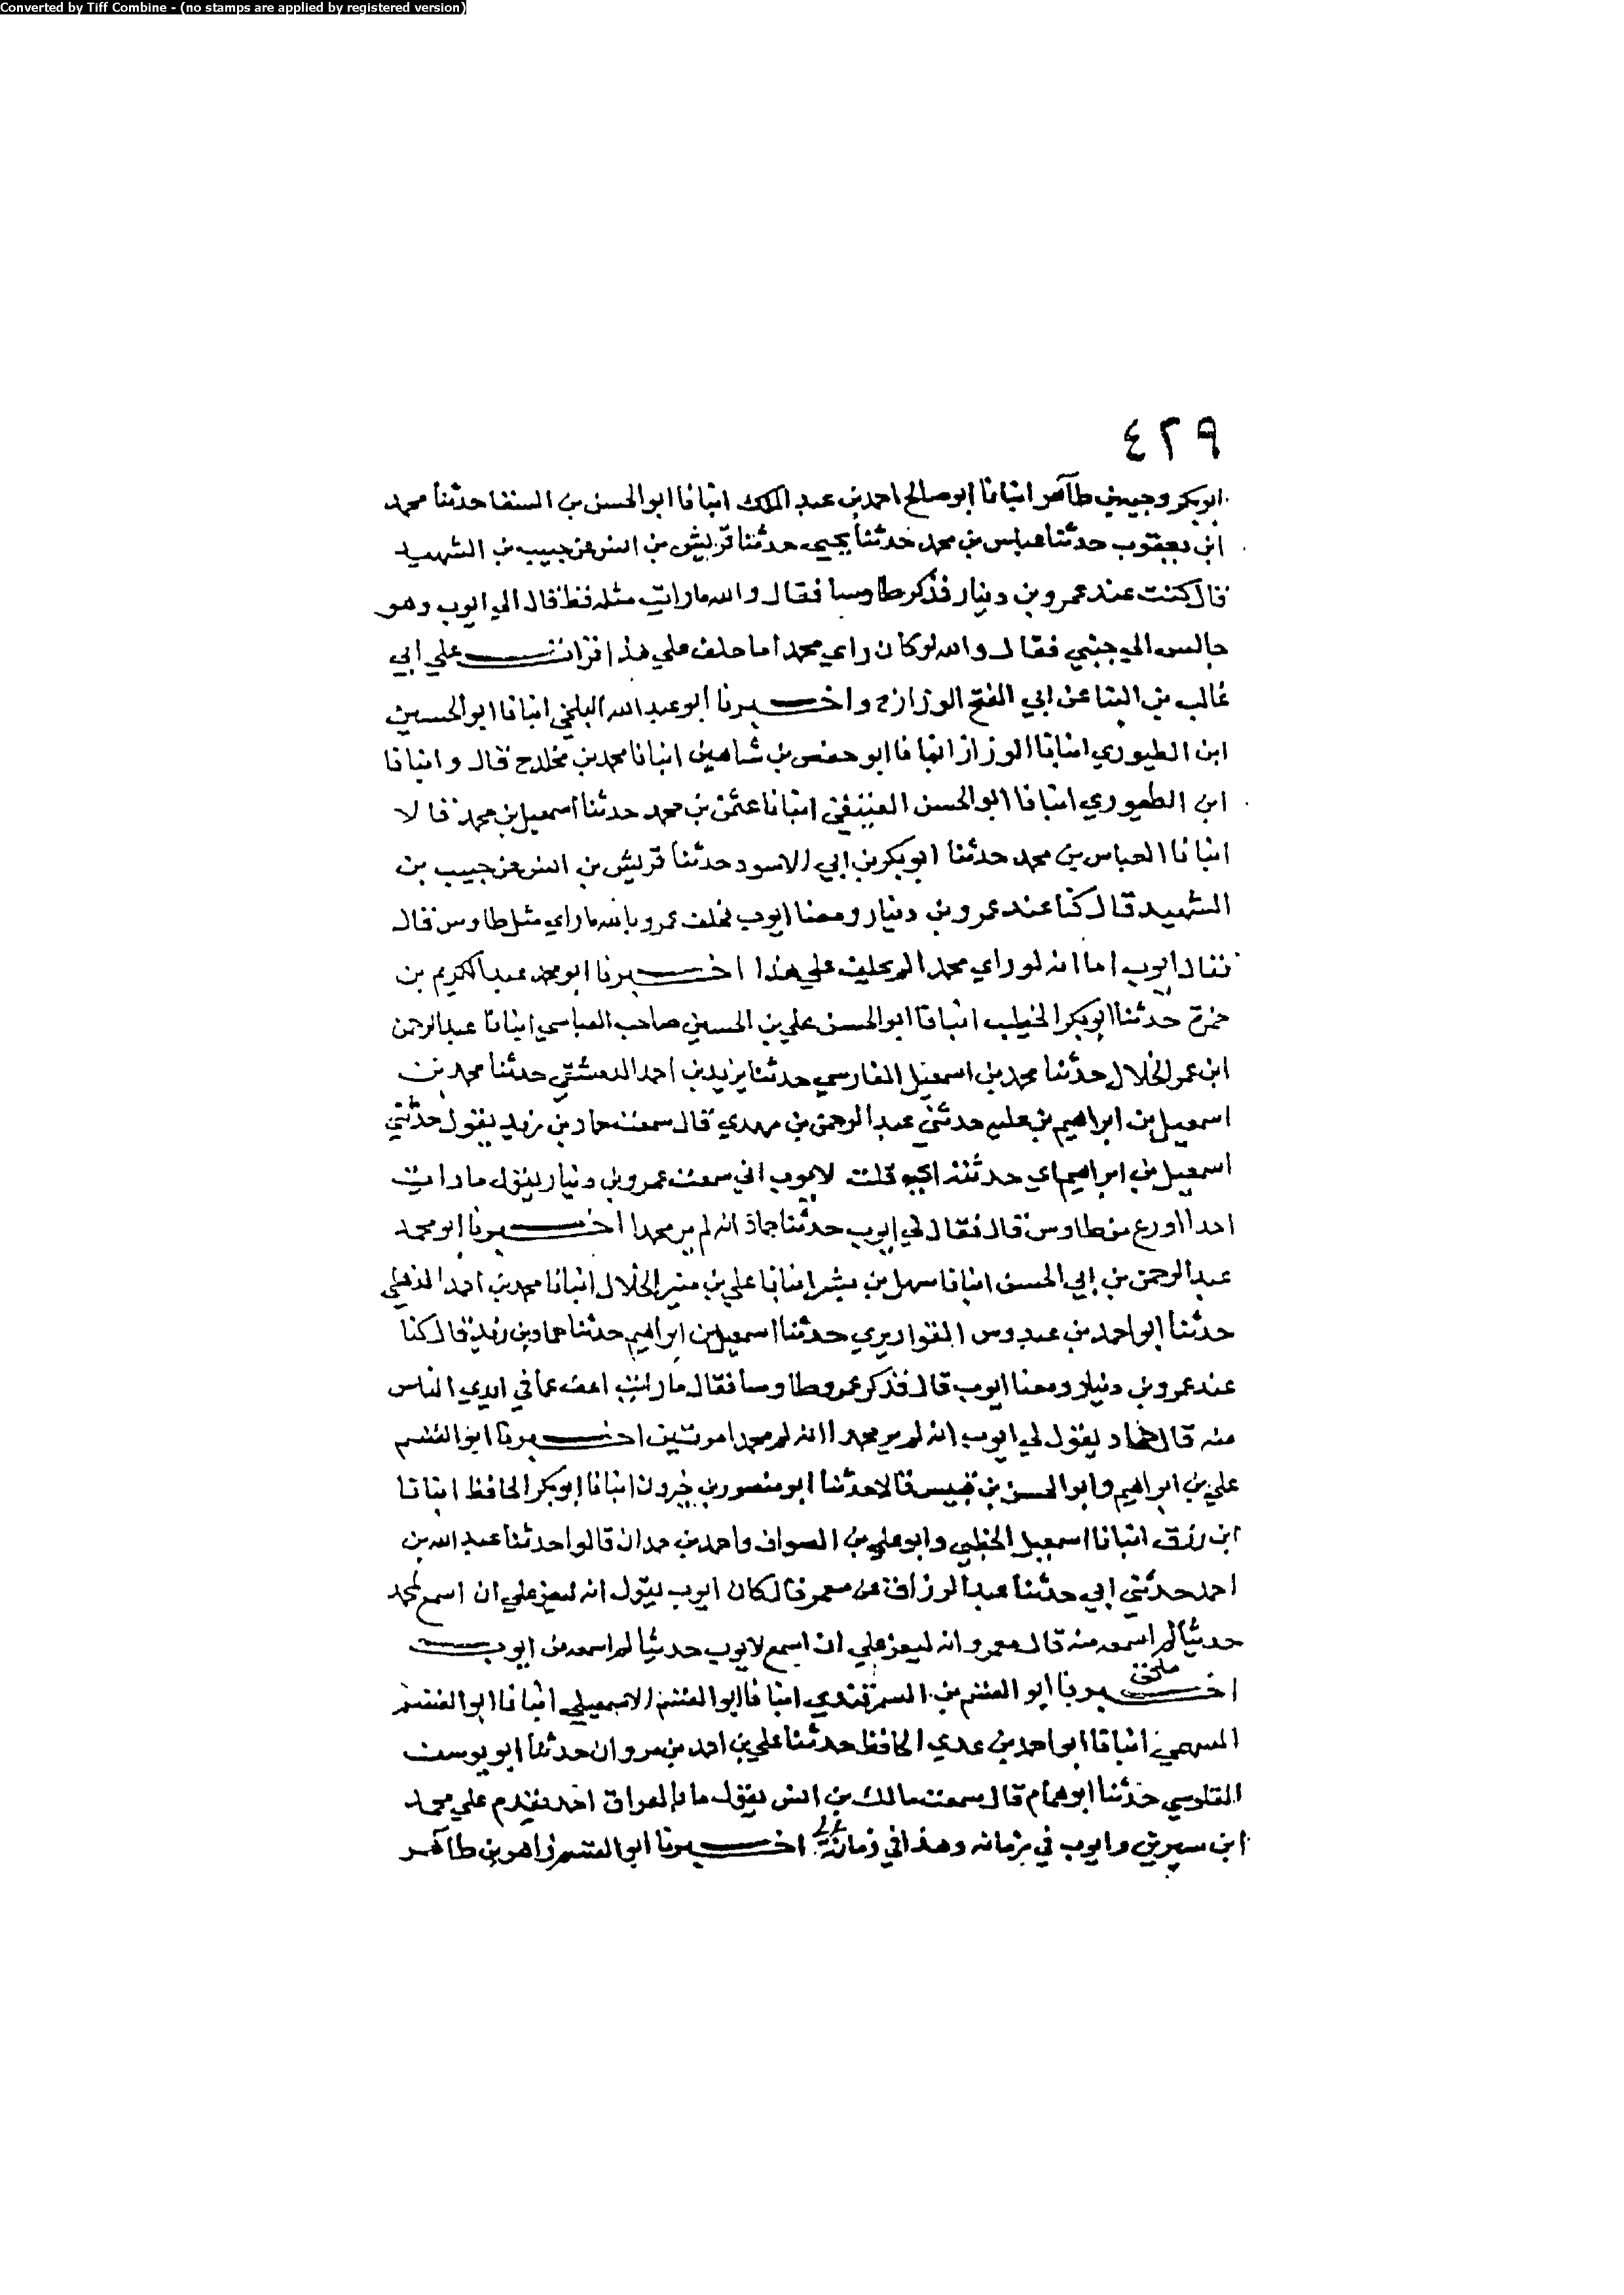 Converted by Tiff Combine - (no stamps are applied by registered version)
٤٢٩
ابو بكر وجيه بن طاهر انبانا ابو صالح احمد بن عبد الملك انبانا ابو الحسن بن السقا حدثنا محمد
ابن يعقوب حدثنا عباس بن محمد حدثنا يحيى حدثنا قريش بن انس عن حبيب بن الشهيد
قال كنت عند عمرو بن دينار فذكر طاوسا فقال والله ما رايت مثله قط قال الي ايوب وهو
جالس الي جنبي فقال والله لو كان راي محمدا ما حلف علي هذا قرات علي ابي
غالب بن البنا عن ابي الفتح الرزاز ح واخبرنا ابو عبد الله البلخي انبانا ابو الحسين
ابن الطيوري انبانا الرزاز انبانا ابو حفص بن شاهين انبانا محمد بن مخلد ح قال وانبانا
ابن الطيوري انبانا ابو الحسن العتيقي انبانا عثمن بن محمد حدثنا اسمعيل بن محمد قالا
انبانا العباس بن محمد حدثنا ابو بكر بن ابي الاسود حدثنا قريش بن انس عن حبيب بن
الشهيد قال كنا عند عمرو بن دينار ومعنا ايوب فحلف عمرو بالله ما راي مثل طاوس قال
فقال ايوب اما انه لو راي محمدا لم يحلف علي هذا اخبرنا ابو محمد عبد الكريم بن
حمزة حدثنا ابو بكر الخطيب انبانا ابو الحسن علي بن الحسين صاحب العباسي انبانا عبد الرحمن
ابن عمر الخلال حدثنا محمد بن اسمعيل الفارسي حدثنا يزيد بن احمد الدمشقي حدثنا محمد بن
اسمعيل بن ابراهيم بن علية حدثني عبد الرحمن بن مهدي قال سمعت حماد بن زيد يقول حدثني
اسمعيل بن ابراهيم اي حدثته ابيه قلت لايوب اني سمعت عمرو بن دينار يقول ما رايت
احدا اورع من طاوس قال فقال لي ايوب حدثنا حماد انه لم ير محمدا اخبرنا ابو محمد
عبد الرحمن بن ابي الحسن انبانا سهل بن بشر انبانا علي بن منير الخلال انبانا محمد بن احمد الذهلي
حدثنا ابو احمد بن عبدوس القواريري حدثنا اسمعيل بن ابراهيم حدثنا حماد بن زيد قال كنا
عند عمرو بن دينار ومعنا ايوب قال فذكر عمرو طاوسا فقال ما رايت اعف عما في ايدي الناس
منه قال حماد يقول لي ايوب انه لم ير محمدا انه لم ير محمدا مرتين اخبرنا ابو القسم
علي بن ابراهيم وابو الحسن بن قبيس قالا حدثنا ابو منصور بن خيرون انبانا ابو بكر الحافظ انبانا
ابن رزق انبانا اسمعيل الخطبي وابو علي بن الصواف واحمد بن حمدان قالوا حدثنا عبد الله بن
احمد حدثني ابي حدثنا عبد الرزاق عن معمر قال كان ايوب يقول انه ليعز علي ان اسمع لمحمد
حديثا لم اسمعه منه قال معمر وانه ليعز علي ان اسمع لايوب حديثا لم اسمعه من ايوب
اخبرنا ابو القسم بن السمرقندي انبانا ابو القسم الاسمعيلي انبانا ابو القسم
السهمي انبانا ابو احمد بن عدي الحافظ حدثنا علي بن احمد بن مروان حدثنا ابو يوسف
القلوسي حدثنا ابو همام قال سمعت مالك بن انس يقول ما بالعراق احد يقدم علي محمد
ابن سيرين وايوب في زمانه وهذا في زمانه اخبرنا ابو القسم زاهر بن طاهر